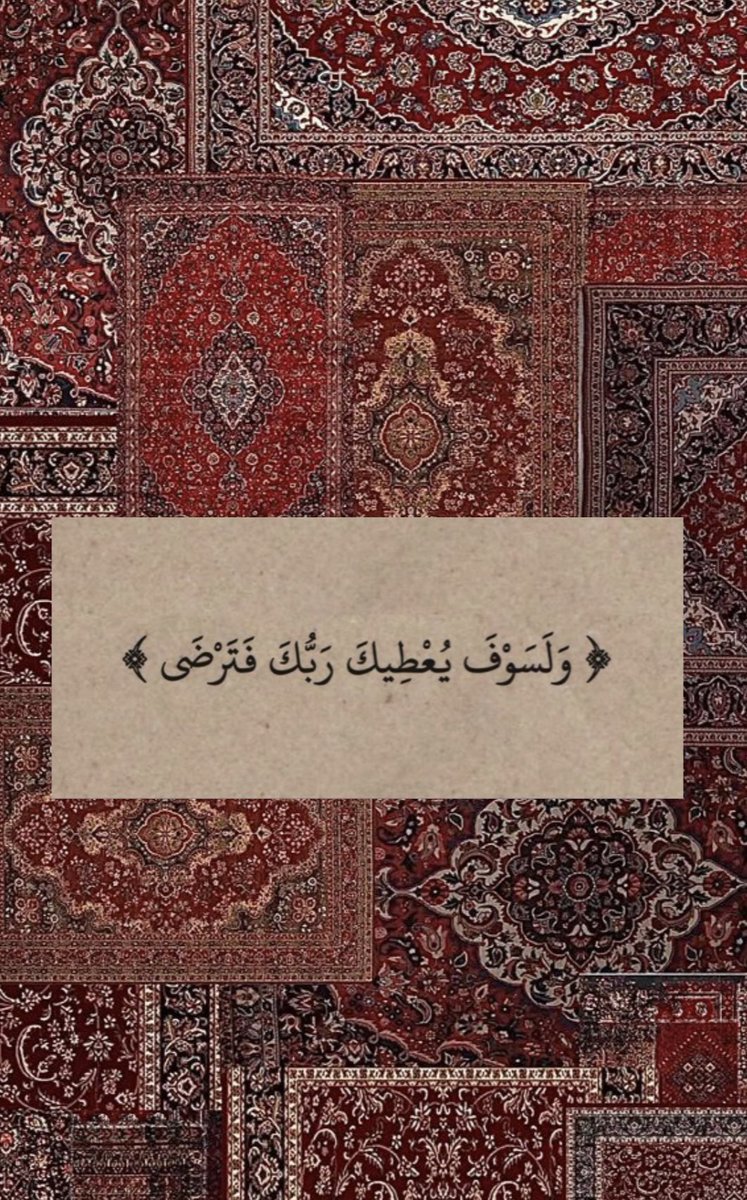 ﴿ وَلَسَوْفَ يُعْطِيكَ رَبُّكَ فَتَرْضَى ﴾